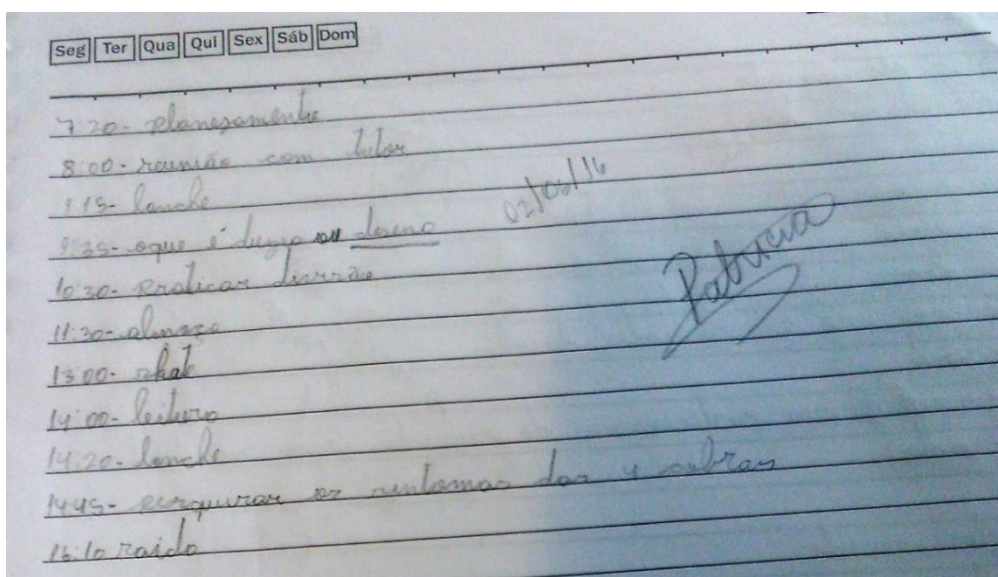 Seg Ter Qua Qui Sex Sáb Dom
7:20- planejamento
8:00- reunião com tutor
9:15- lanche
9:35- oque é duzia ou
02/06/16
10:30- praticar divisão
Patricia
11:30- almoço
13:00-
14:00- leitura
14:20- lanche
14:45- pesquisar os sintomas das 4 cobras
16:10 saida